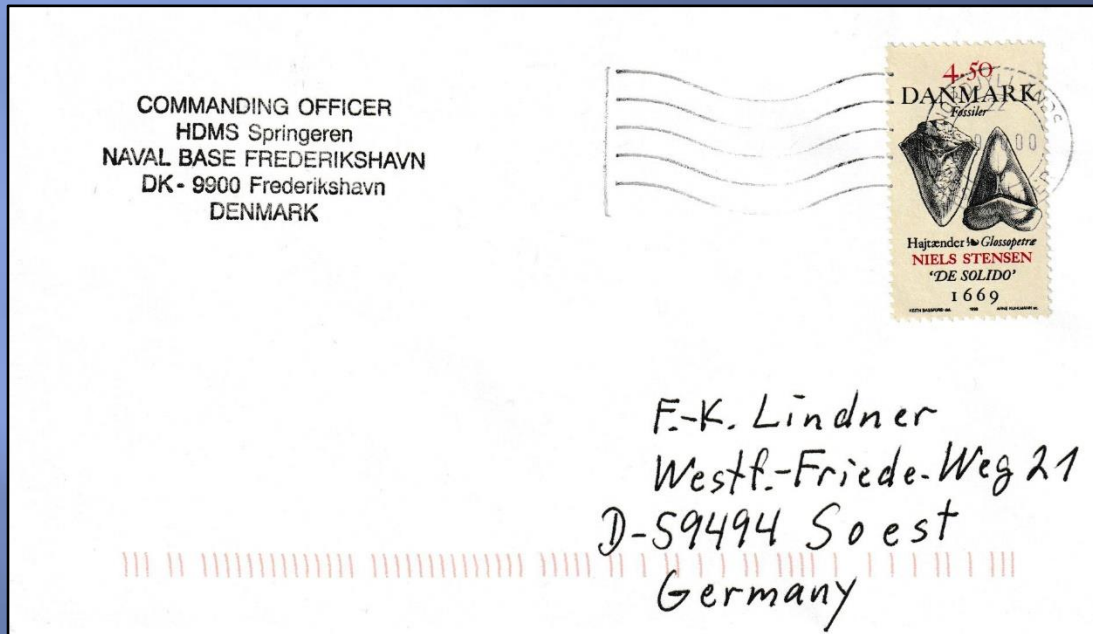 COMMANDING OFFICER
HDMS Springeren
NAVAL BASE FREDERIKSHAVN
DK - 9900 Frederikshavn
DENMARK
4.50
DANMARK
Fossiler
Hajtænder Glossopetræ
NIELS STENSEN
'DE SOLIDO'
1669
F.-K. Lindner
Westf.-Friede-Weg 21
D-59494 Soest
Germany